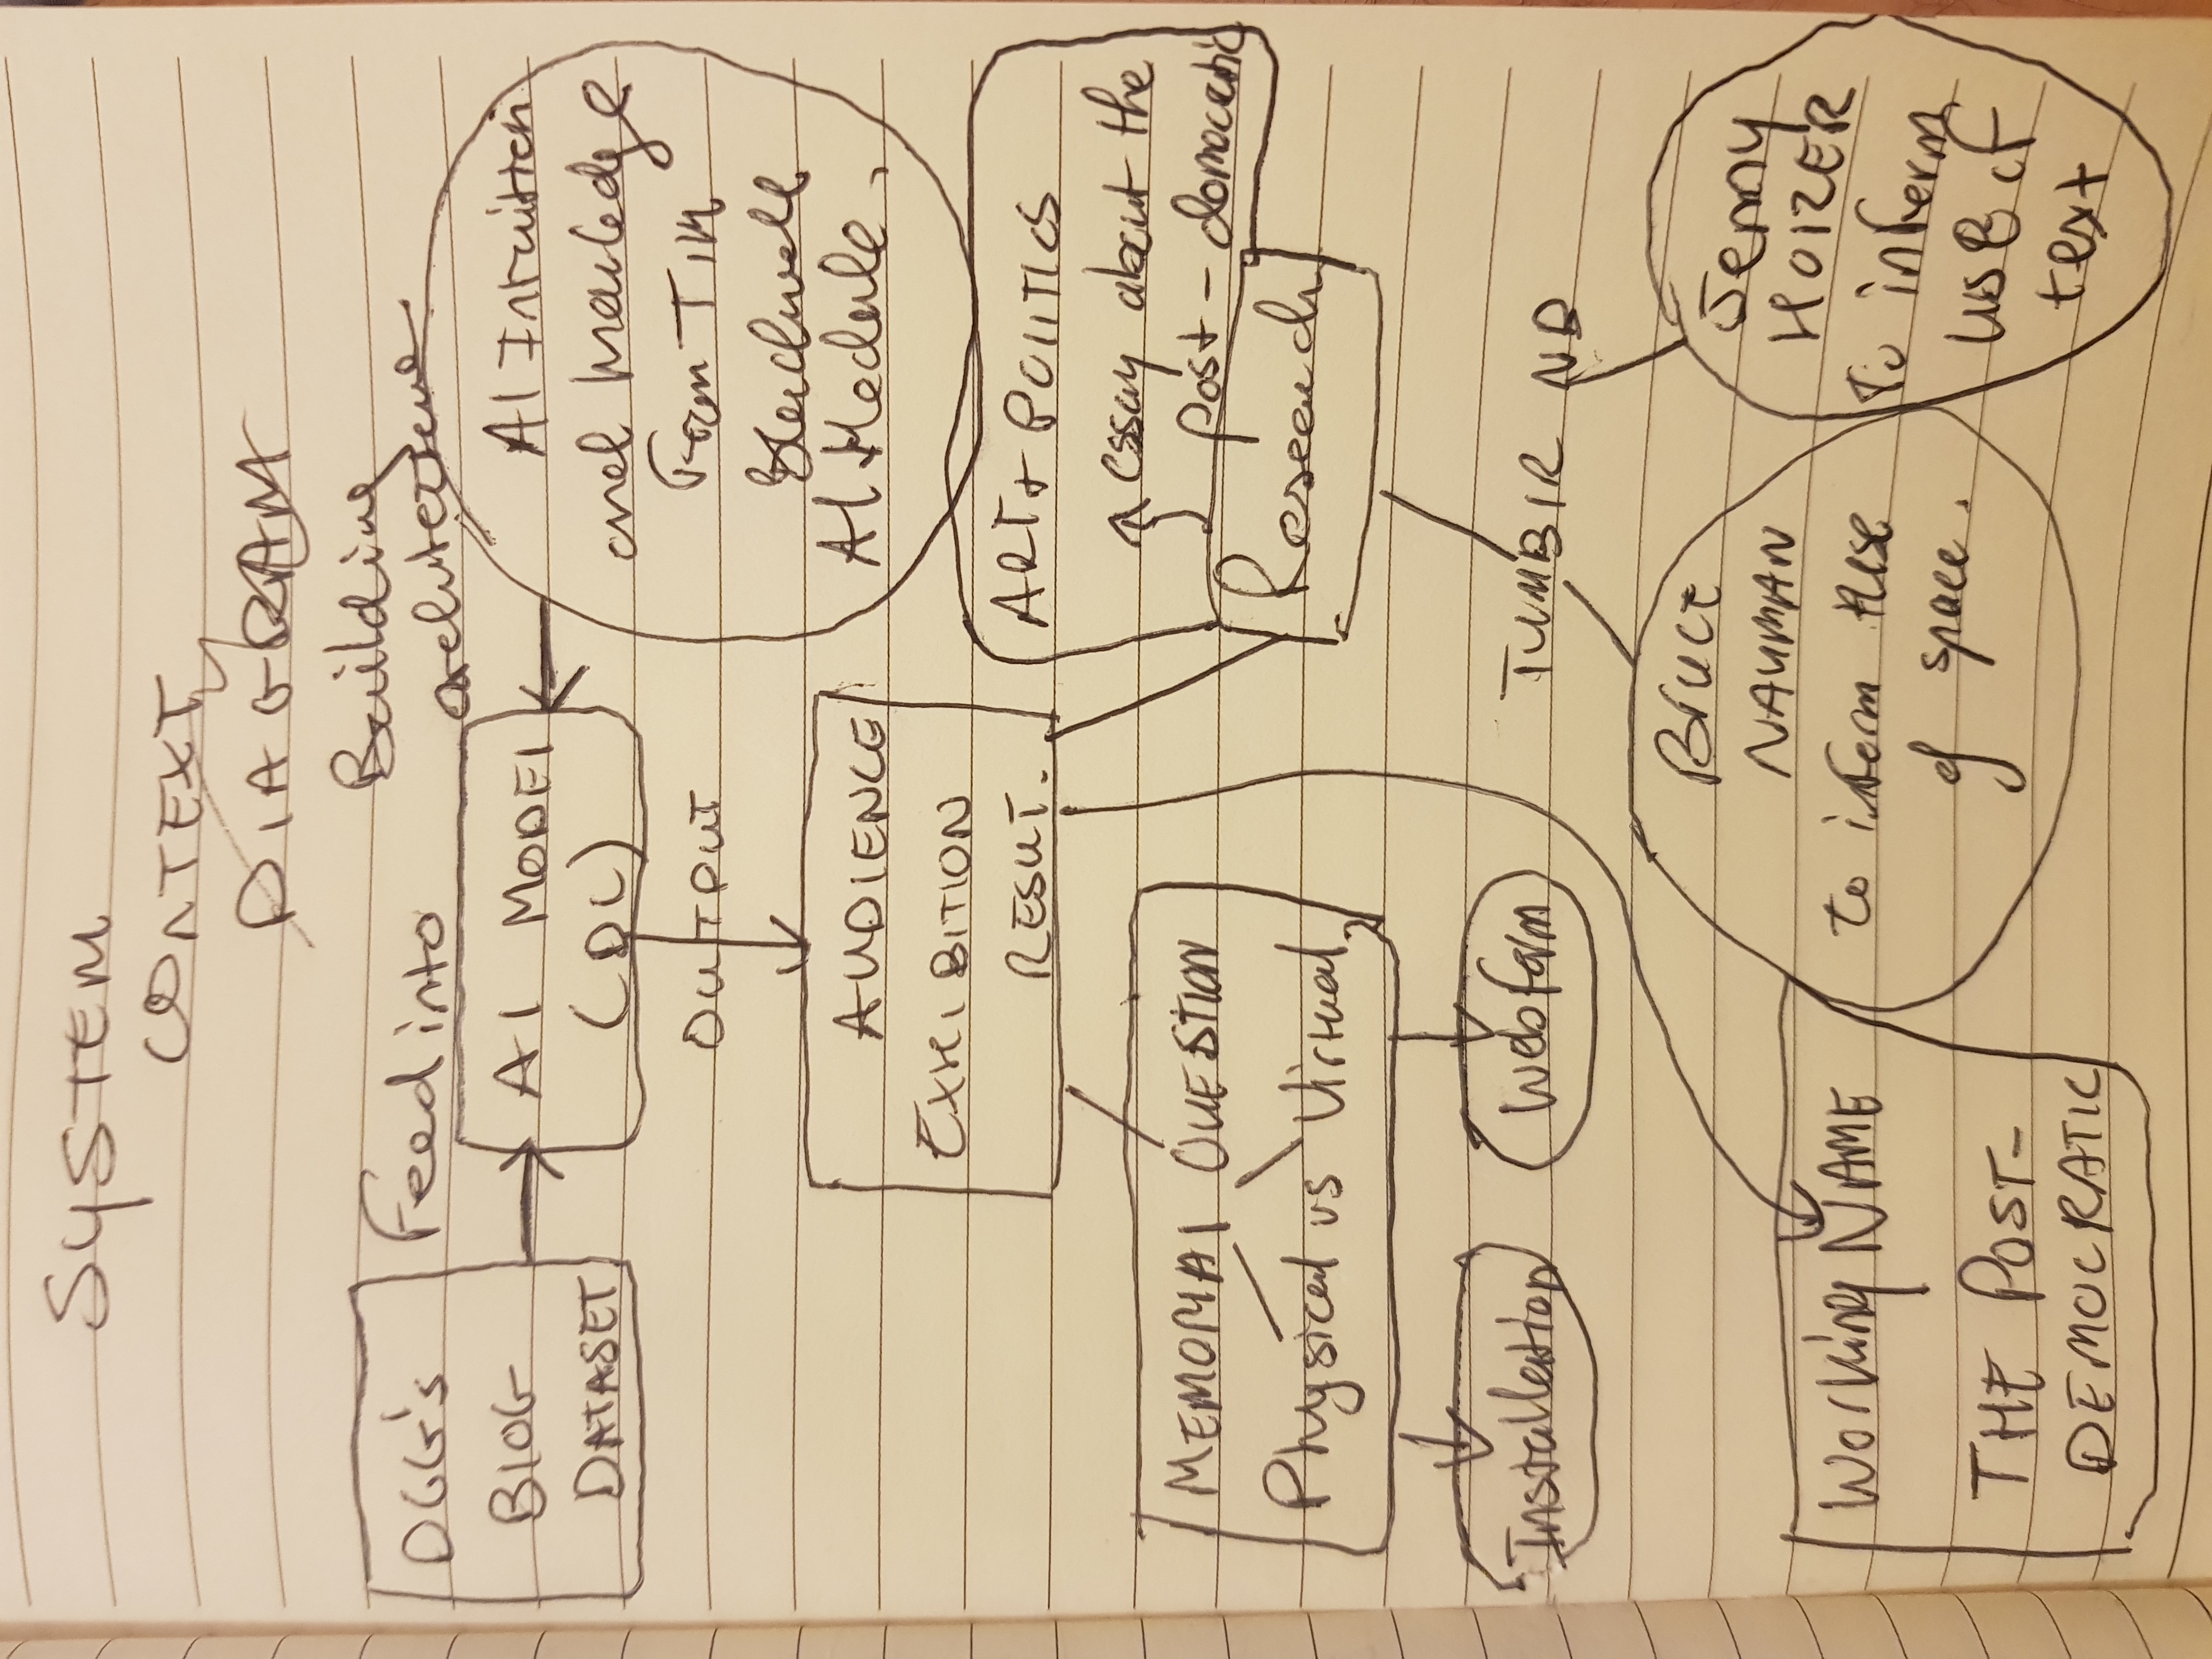 SYSTEM
CONTEXT
DIAGRAM
DGG's
BLOG
DATASET
Feed into
Building
architecture
AI MODEL
(DL)
AI Intuition
and knowledge
From TIM
Blackwell
AI Module.
OUTPUT
AUDIENCE
EXHIBITION
RESULT.
ART + POLITICS
essay about the
post-democratic
Research
MEMORIAL QUESTION
Physical vs Virtual
Installation
Web form
TUMBLR NB
BRUCE
NAUMAN
to inform use
of space.
Jenny
HOLZER
To inform
use of
text
Working NAME
THE POST-
DEMOCRATIC